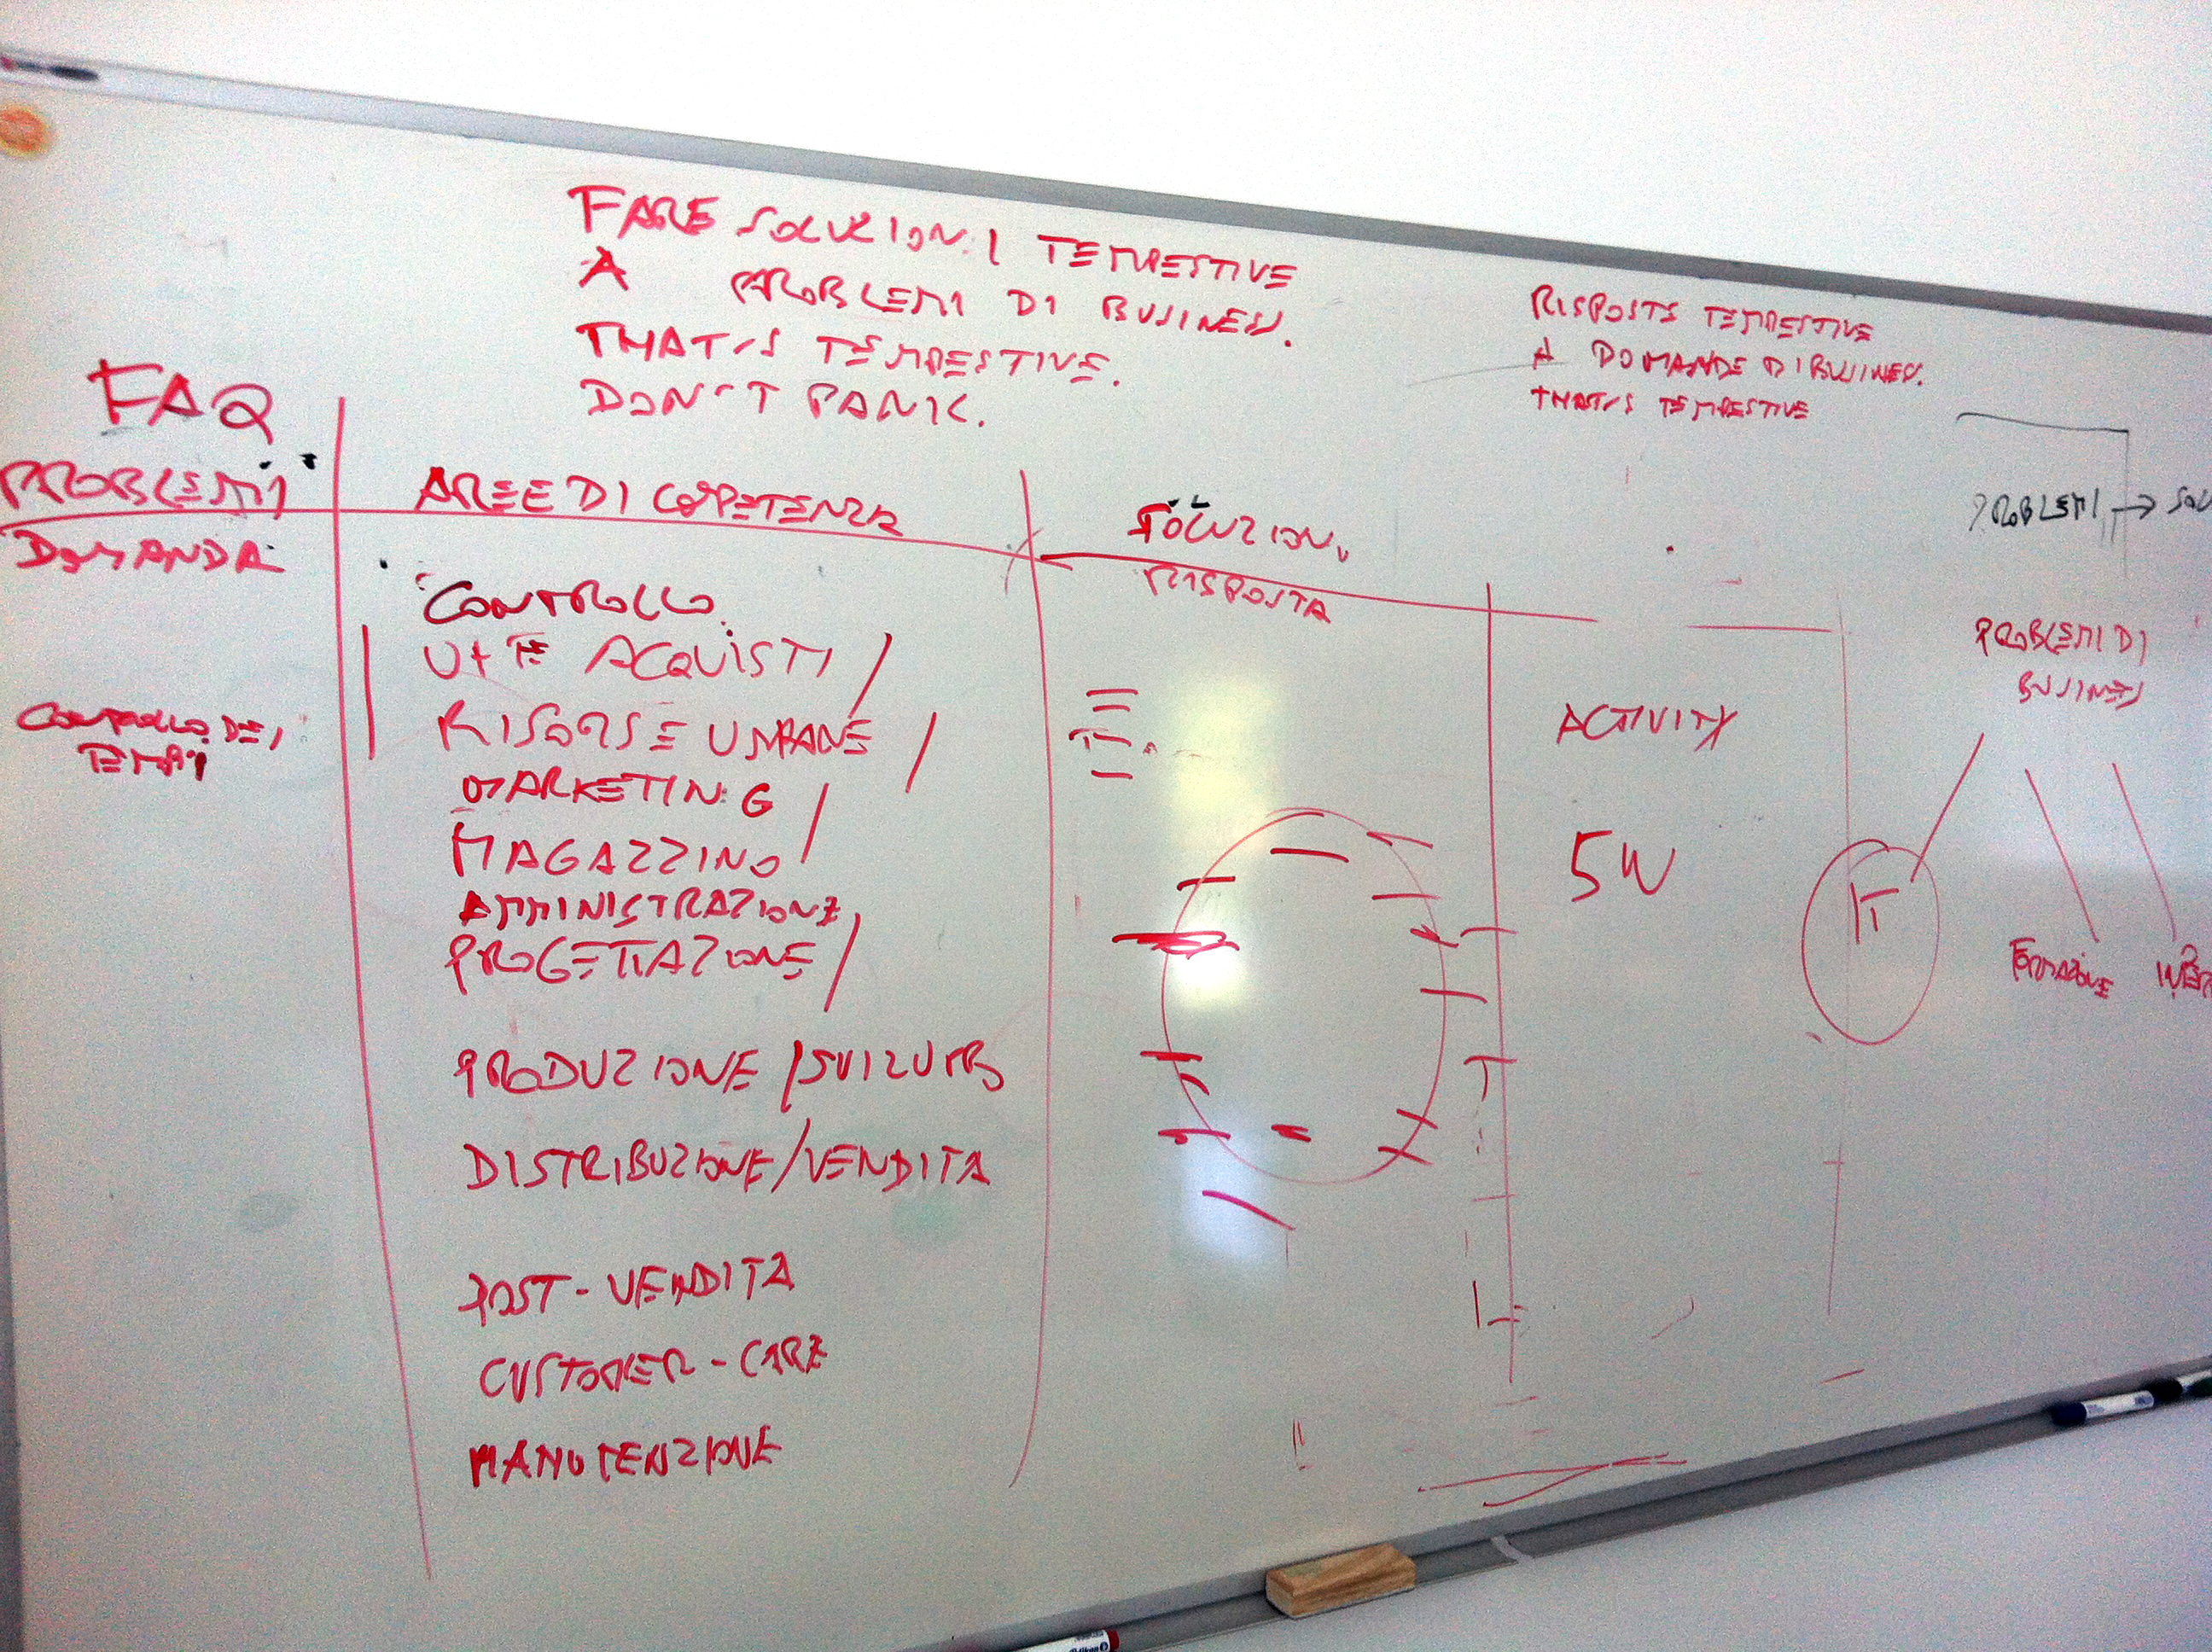 FARE SOLUZIONI TEMPESTIVE
A PROBLEMI DI BUSINESS.
THAT'S TEMPESTIVE.
DON'T PANIK.
RISPOSTE TEMPESTIVE
A DOMANDE DI BUSINESS.
THAT'S TEMPESTIVE
FAQ
PROBLEMI
DOMANDA
CONTROLLO DEI
TEMPI
AREE DI COMPETENZA
CONTROLLO
ACQUISTI
RISORSE UMANE
MARKETING
MAGAZZINO
AMMINISTRAZIONE
PROGETTAZIONE
PRODUZIONE / SVILUPPO
DISTRIBUZIONE / VENDITA
POST-VENDITA
CUSTOMER-CARE
MANUTENZIONE
SOLUZIONI
RISPOSTA
ACTIVITY
5W
PROBLEMI → SOLU
PROBLEMI DI
BUSINESS
IT
FORMAZIONE